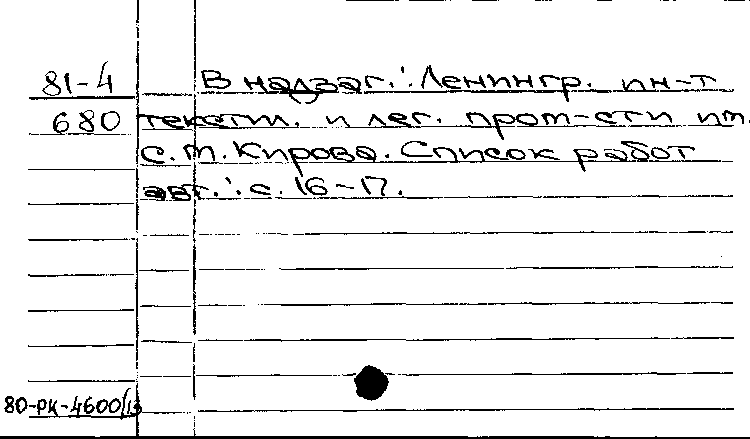 81-4 В надзаг.: Ленингр. ин-т
680 текстил. и лег. пром-сти им.
С.М. Кирова. Список работ
авт.: с. 16-17.
80-РК-4600/13